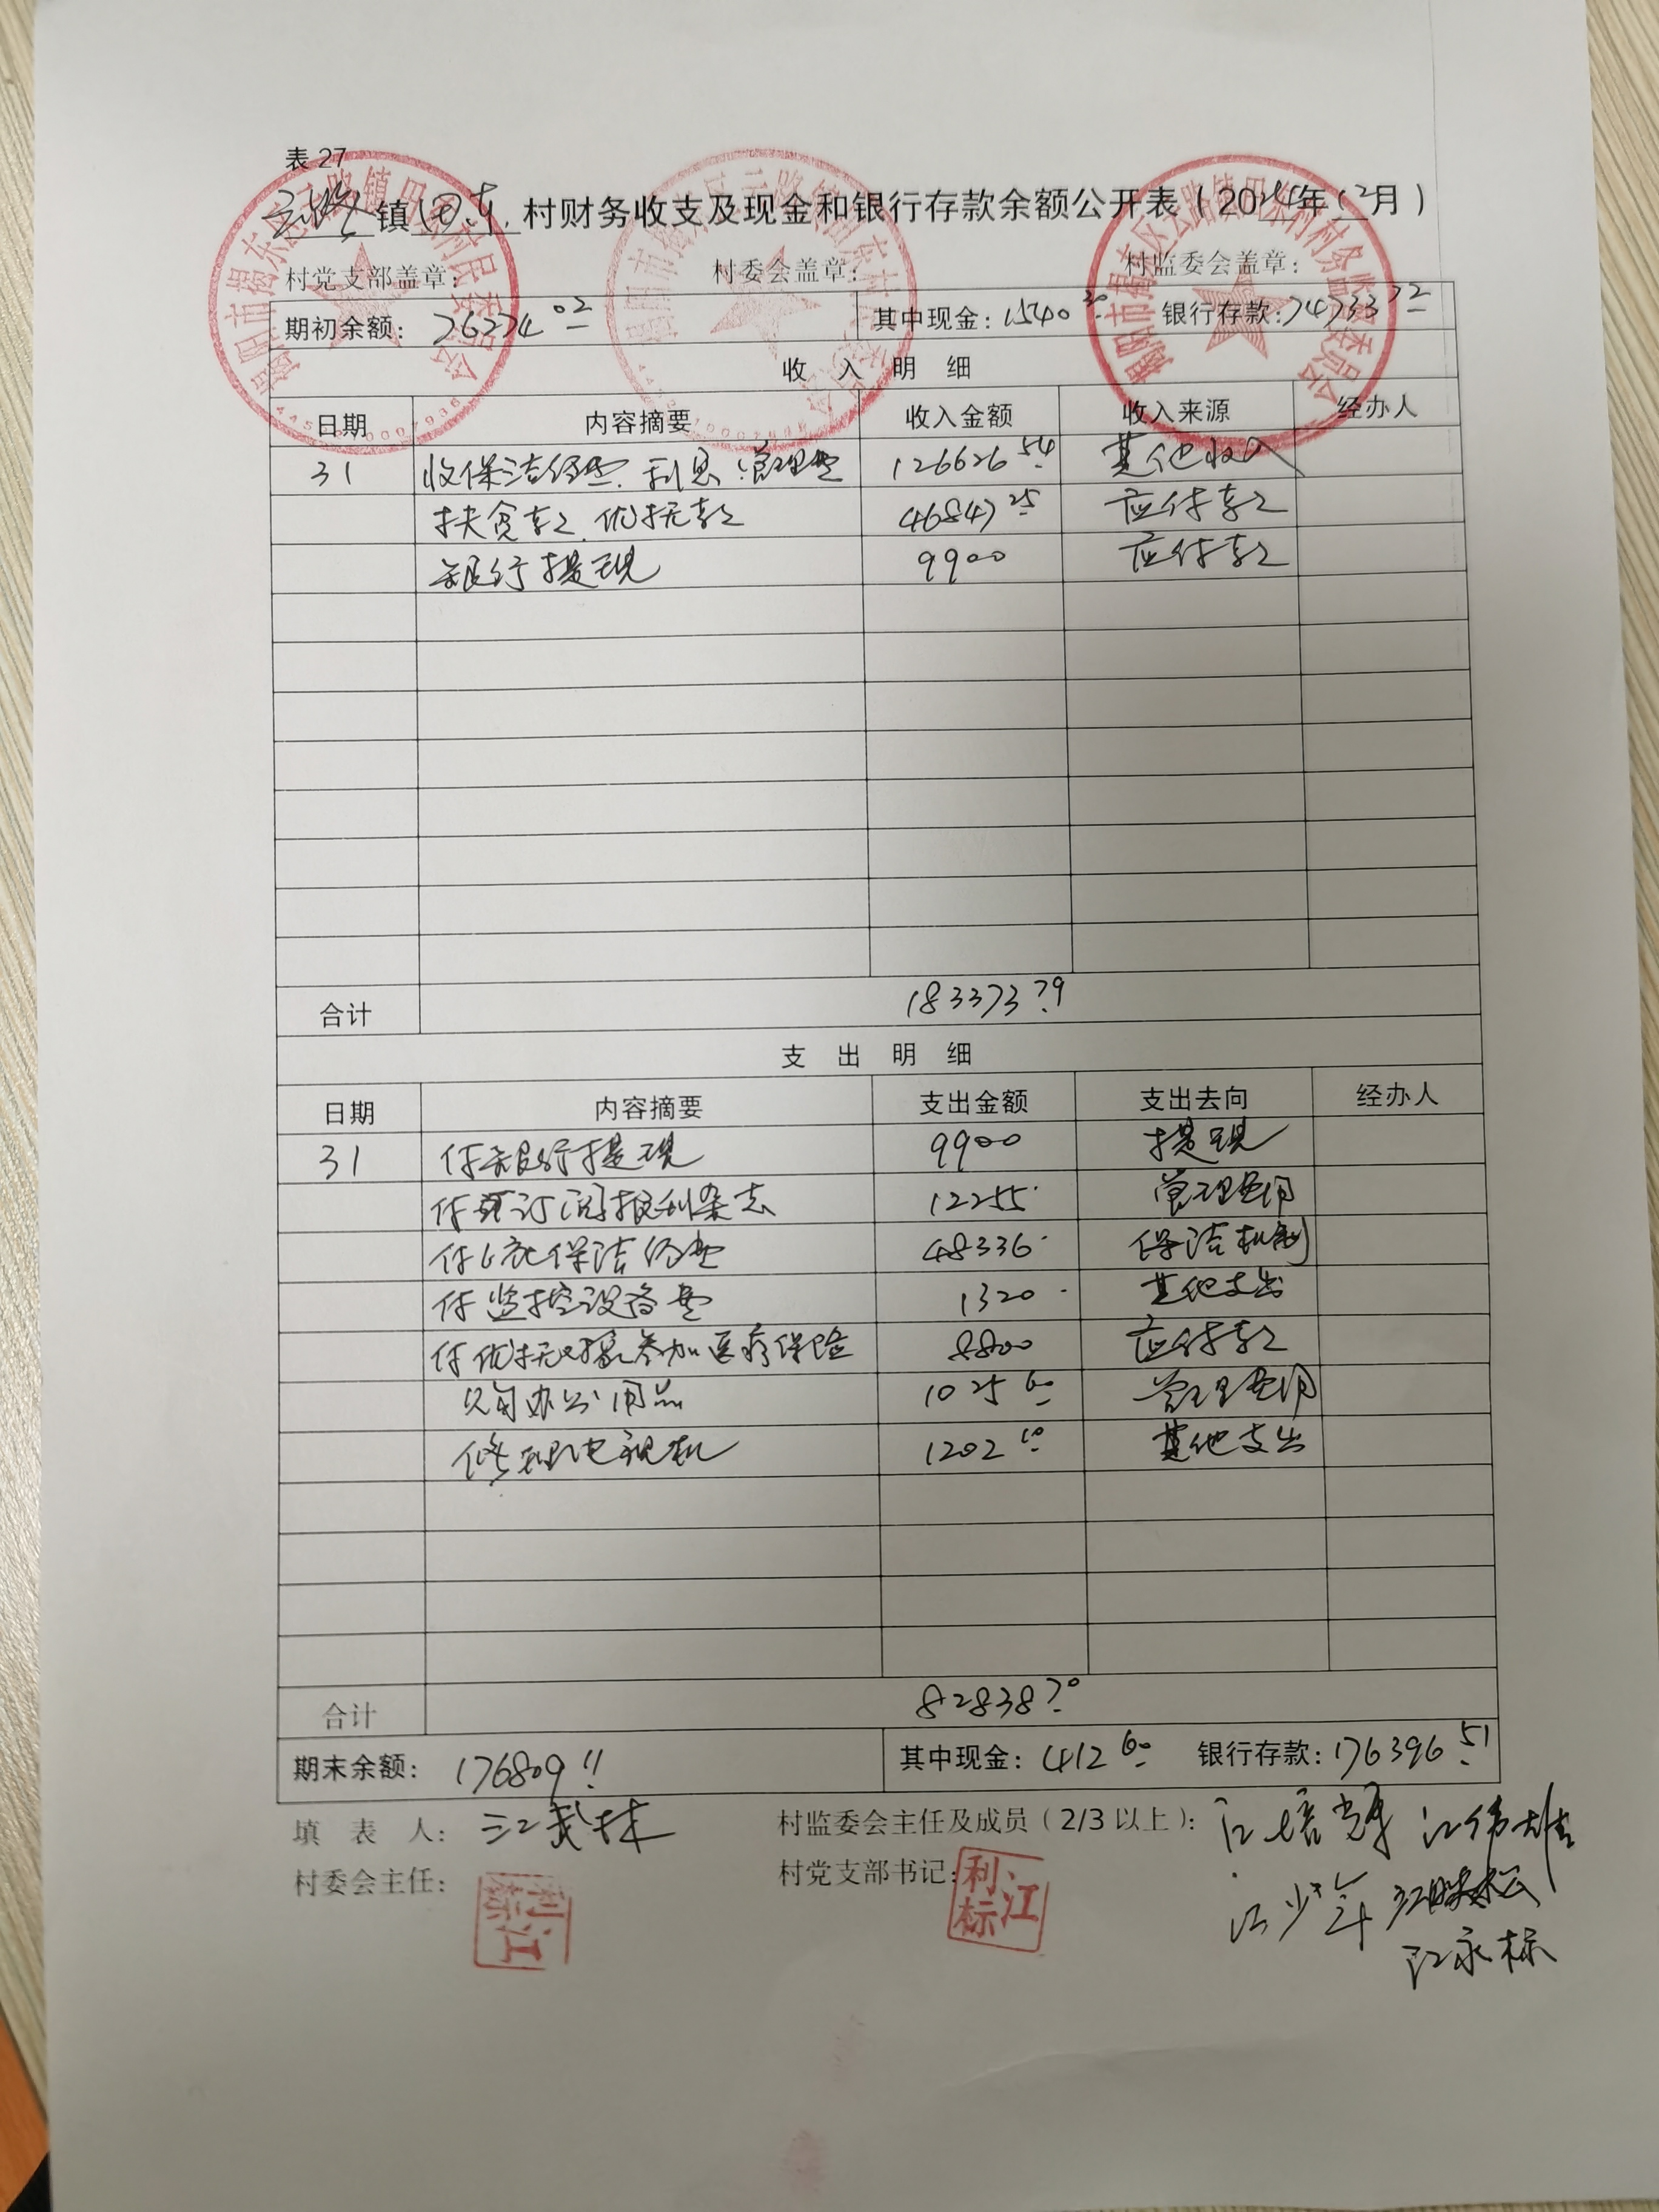 表 27
云路镇田东村财务收支及现金和银行存款余额公开表（2024年12月）
村党支部盖章： 村委会盖章： 村监委会盖章：
期初余额： 76274.02 其中现金：1540.30 银行存款：74733.72
收 入 明 细
日期 内容摘要 收入金额 收入来源 经办人
31 收保洁经费、利息、管理费 126626.54 其他收入
扶贫款、优抚款 46847.25 应付款
银行提现 9900 应付款
合计 183373.79
支 出 明 细
日期 内容摘要 支出金额 支出去向 经办人
31 付银行提现 9900 提现
付订阅报刊杂志 12255 管理费用
付 保洁经费 48336 保洁机制
付监控设备费 1320 其他支出
付优抚对象参加医疗保险 8800 应付款
购办公用品 1025.60 管理费用
修理电视机 1202.10 其他支出
合计 82838.70
期末余额： 176809.11 其中现金：412.60 银行存款：176396.51
填 表 人： 江武林 村监委会主任及成员（2/3 以上）： 江培辉 江伟雄
村委会主任： 江利标 村党支部书记： 江利标
江少年 江映松
江永标